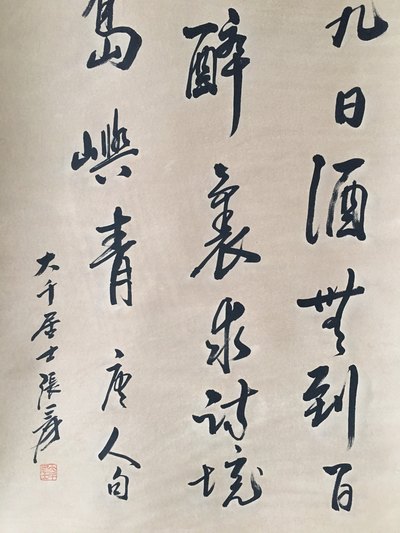 九日酒無到百
醉裏求詩境
島嶼青 唐人句
大千居士張爰